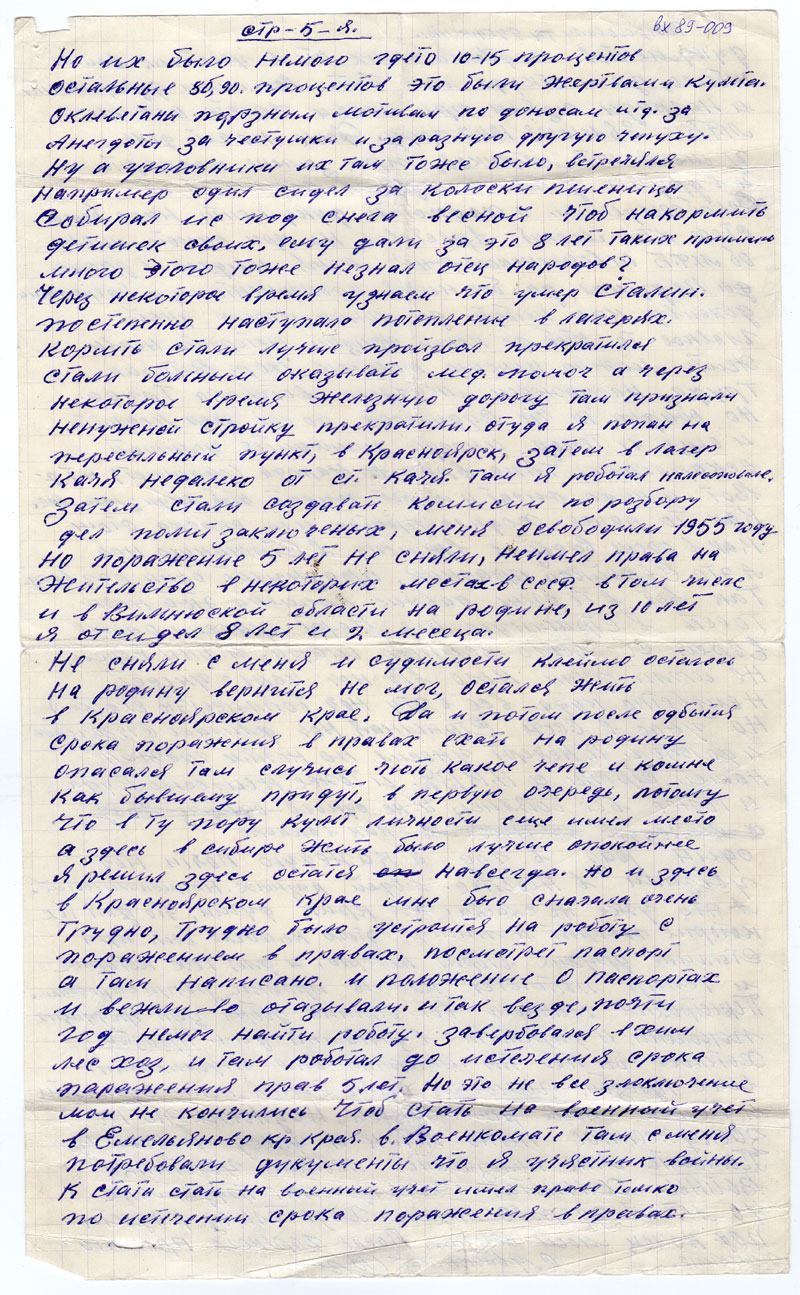 стр-5-я.
вх 89-009
Но их было немого гдето 10-15 процентов
остальные 85,90. процентов это были жертвами культа.
оклеветаны по разным мотивам по доносам итд. за
Анегдоты за честушки и за разную другую чепуху.
Ну а уголовники их там тоже было, встречялся
например один сидел за колоски пшеницы
Собирал ис под снега весной чтоб накормить
детишек своих, ему дали за это 8 лет таких примеров
много этого тоже незнал отец народов?
Через некоторое время узнаем что умер Сталин.
постепенно наступало потепление в лагерях.
Кормить стали лучше произвол прекратился
стали больным оказыват мед. помоч а через
некоторое время железную дорогу там признали
ненужной стройку прекратили. отуда я попал на
пересыльный пункт, в Красноярск, затем в лагер
Качя недалеко от ст. Качя там я роботал
Затем стали создават комисии по розбору
дел политзаключеных, меня освободили 1955 году
Но поражение 5 лет не сняли, неимел права на
жительство в некоторих местах в ссср. в том числе
и в Вильнюской области на родине, из 10 лет
я отсидел 8 лет и 2 месеца.
Не сняли с меня и судимости клеймо осталось
на родину вернится не мог, остался жить
в Красноярском Крае. Да и потом после одбытия
срока поражения в правах ехать на родину
опасался там случись чють какое чепе и комне
как бывшему придут, в первую очередь, потому
что в ту пору культ личности еще имел место
а здесь в сибире жить было лучше спокойнее
я решил здесь остатся навсегда. но и здесь
в Красноярском крае мне было сначала очень
трудно, трудно было устроится на роботу с
поражением в правах. посмотрет паспорт
а там написано. и положение о паспортах
и вежливо отазывали. и так везде, почти
год немог найти роботу. завербовался в хим
лес хоз, и там роботал до истечения срока
паражения прав 5 лет. Но это не все злоключение
мои не кончились чтоб стать на военный учет
в Емельяново кр края. в. Военкомате там с меня
потребовали дукументы что я учястник войны.
К стати стать на военный учет имел право томко
по истечении срока поражения в правах.